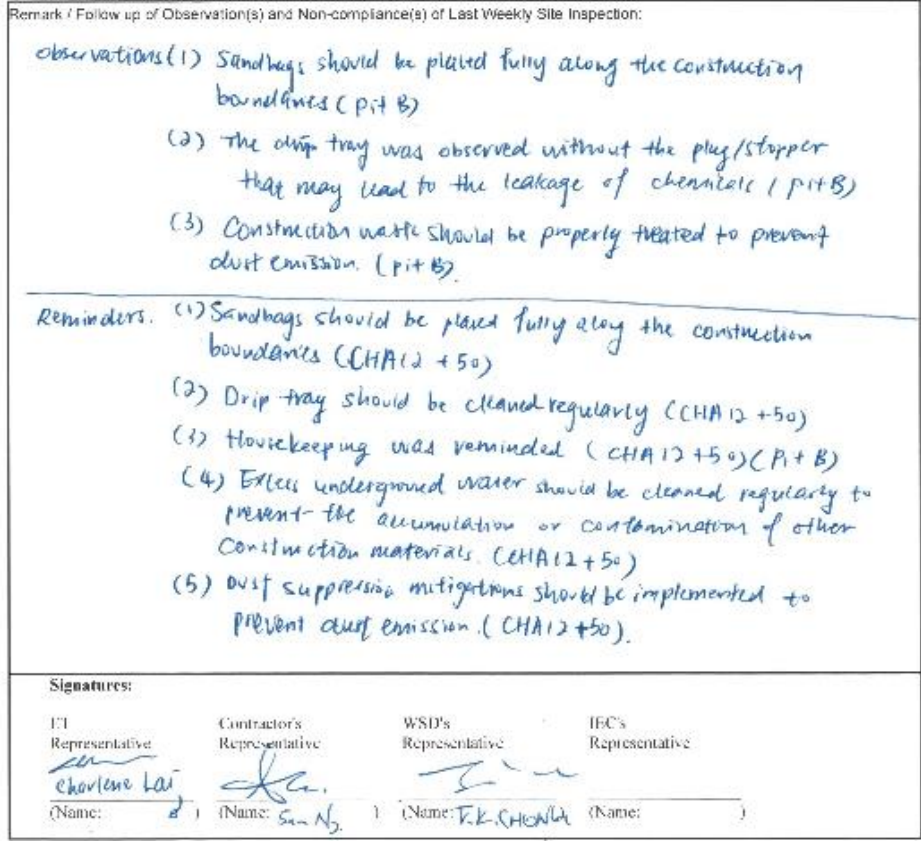 Remark / Follow up of Observation(s) and Non-compliance(s) of Last Weekly Site Inspection:
Observations (1) Sandbags should be placed fully along the construction
boundaries (Pit B)
(2) The drip tray was observed without the plug/stopper
that may lead to the leakage of chemicals (Pit B)
(3) Construction waste should be properly treated to prevent
dust emission. (pit B).
Reminders. (1) Sandbags should be placed fully along the construction
boundaries (CHA12+50)
(2) Drip tray should be cleaned regularly (CHA12+50)
(3) Housekeeping was reminded (CHA12+50) (Pit B)
(4) Excess underground water should be cleaned regularly to
prevent the accumulation or contamination of other
construction materials. (CHA12+50)
(5) Dust suppression mitigations should be implemented to
prevent dust emission. (CHA12+50).
Signatures:
ET Contractor's WSD's IEC's
Representative Representative Representative Representative
Charlene Lai
(Name: ) (Name: Sam Ng ) (Name: T.K. CHONG (Name: )